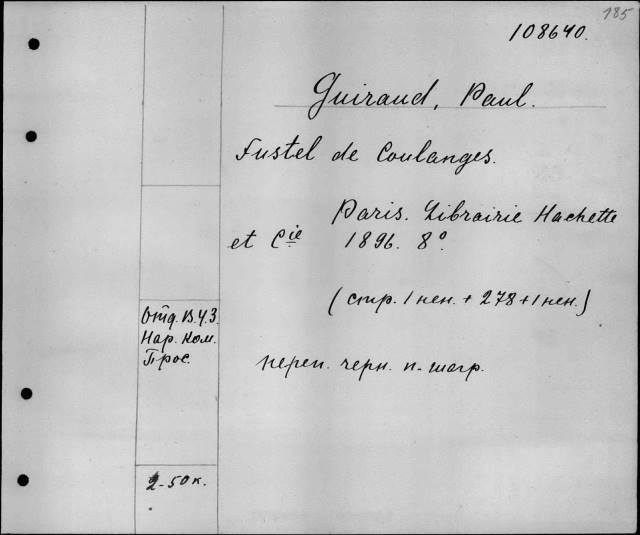 185
108640.
Guiraud, Paul.
Fustel de Coulanges.
Paris. Librairie Hachette
et Cie 1896. 8°.
(стр. 1 нен. + 278 + 1 нен.)
Отд. В.У.З.
Нар. Ком.
Прос.
переп. черн. п-шагр.
2-50 к.